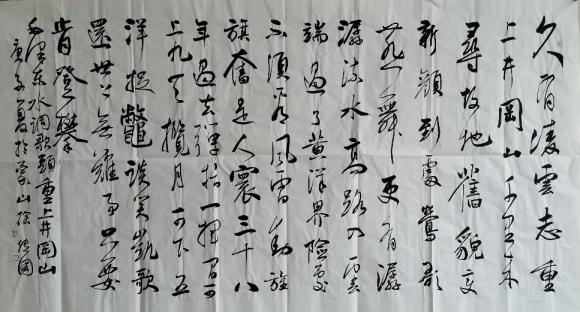 久有凌雲志重
上井岡山千里来
尋故地舊貌变
新顔到處鶯歌
燕舞更有潺
潺流水高路入雲
端過了黄洋界險處
不須看風雷動旌
旗奮是人寰三十八
年過去弹指一揮间可
上九天攬月可下五
洋捉鱉談笑凱歌
還世上無難事只要
肯登攀
毛澤東水調歌頭重上井岡山
庚子夏於蒙山徐